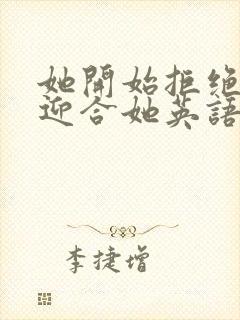 她開始拒絕
迎合她英語
李捷增